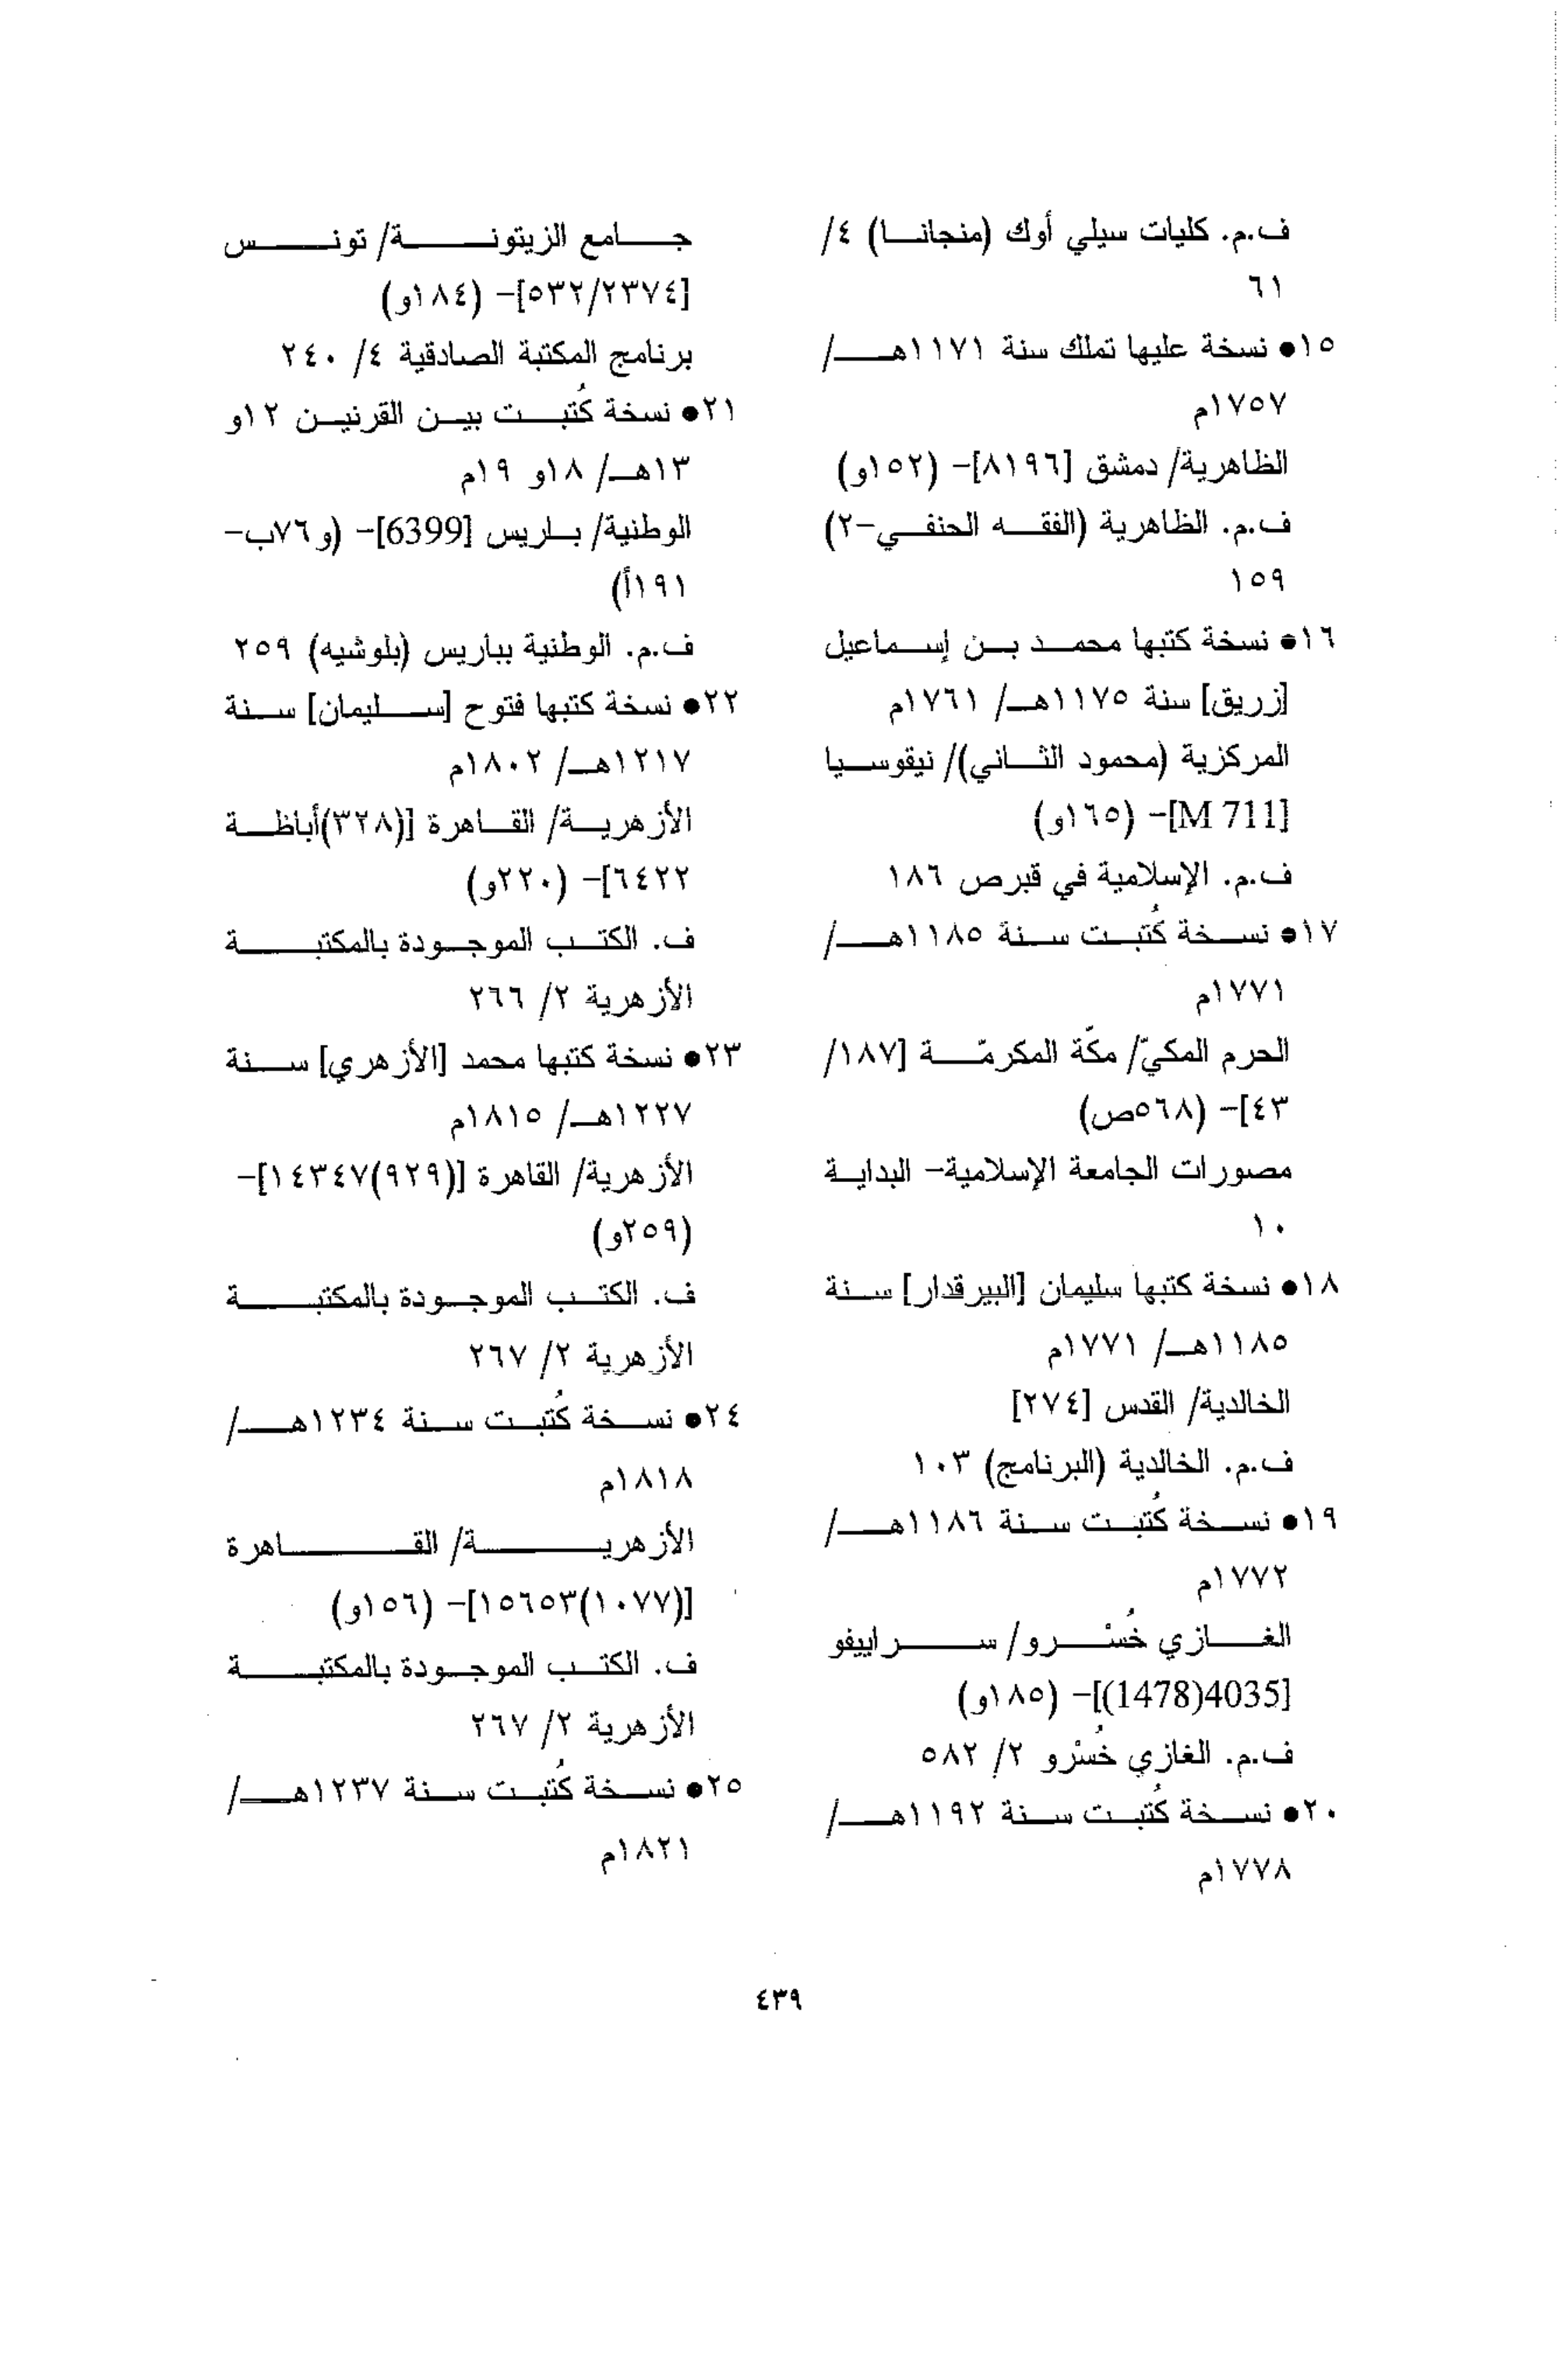 ف.م. كليات سيلي أوك (منجانا) ٤/
٦١
١٥● نسخة عليها تملك سنة ١١٧١هـ/
١٧٥٧م
الظاهرية/ دمشق [٨١٩٦]- (١٥٢و)
ف.م. الظاهرية (الفقه الحنفي-٢)
١٥٩
١٦● نسخة كتبها محمد بن إسماعيل
[زريق] سنة ١١٧٥هـ/ ١٧٦١م
المركزية (محمود الثاني)/ نيقوسيا
[M 711]- (١٦٥و)
ف.م. الإسلامية في قبرص ١٨٦
١٧● نسخة كُتبت سنة ١١٨٥هـ/
١٧٧١م
الحرم المكيّ/ مكّة المكرمّة [١٨٧/
٤٣]- (٥٦٨ص)
مصورات الجامعة الإسلامية- البداية
١٠
١٨● نسخة كتبها سليمان [البيرقدار] سنة
١١٨٥هـ/ ١٧٧١م
الخالدية/ القدس [٢٧٤]
ف.م. الخالدية (البرنامج) ١٠٣
١٩● نسخة كُتبت سنة ١١٨٦هـ/
١٧٧٢م
الغازي خُسْرو/ سراييفو
[4035(1478)]- (١٨٥و)
ف.م. الغازي خُسْرو ٢/ ٥٨٢
٢٠● نسخة كُتبت سنة ١١٩٢هـ/
١٧٧٨م
جامع الزيتونة/ تونس
[٥٣٢/٢٣٧٤]- (١٨٤و)
برنامج المكتبة الصادقية ٤/ ٢٤٠
٢١● نسخة كُتبت بين القرنين ١٢و
١٣هـ/ ١٨و ١٩م
الوطنية/ باريس [6399]- (و٧٦ب-
١٩١أ)
ف.م. الوطنية بباريس (بلوشيه) ٢٥٩
٢٢● نسخة كتبها فتوح [سليمان] سنة
١٢١٧هـ/ ١٨٠٢م
الأزهرية/ القاهرة [(٣٢٨)أباظة
٦٤٢٢]- (٢٢٠و)
ف. الكتب الموجودة بالمكتبة
الأزهرية ٢/ ٢٦٦
٢٣● نسخة كتبها محمد [الأزهري] سنة
١٢٢٧هـ/ ١٨١٥م
الأزهرية/ القاهرة [(٩٢٩)١٤٣٤٧]-
(٢٥٩و)
ف. الكتب الموجودة بالمكتبة
الأزهرية ٢/ ٢٦٧
٢٤● نسخة كُتبت سنة ١٢٣٤هـ/
١٨١٨م
الأزهرية/ القاهرة
[(١٠٧٧)١٥٦٥٣]- (١٥٦و)
ف. الكتب الموجودة بالمكتبة
الأزهرية ٢/ ٢٦٧
٢٥● نسخة كُتبت سنة ١٢٣٧هـ/
١٨٢١م
٤٣٩